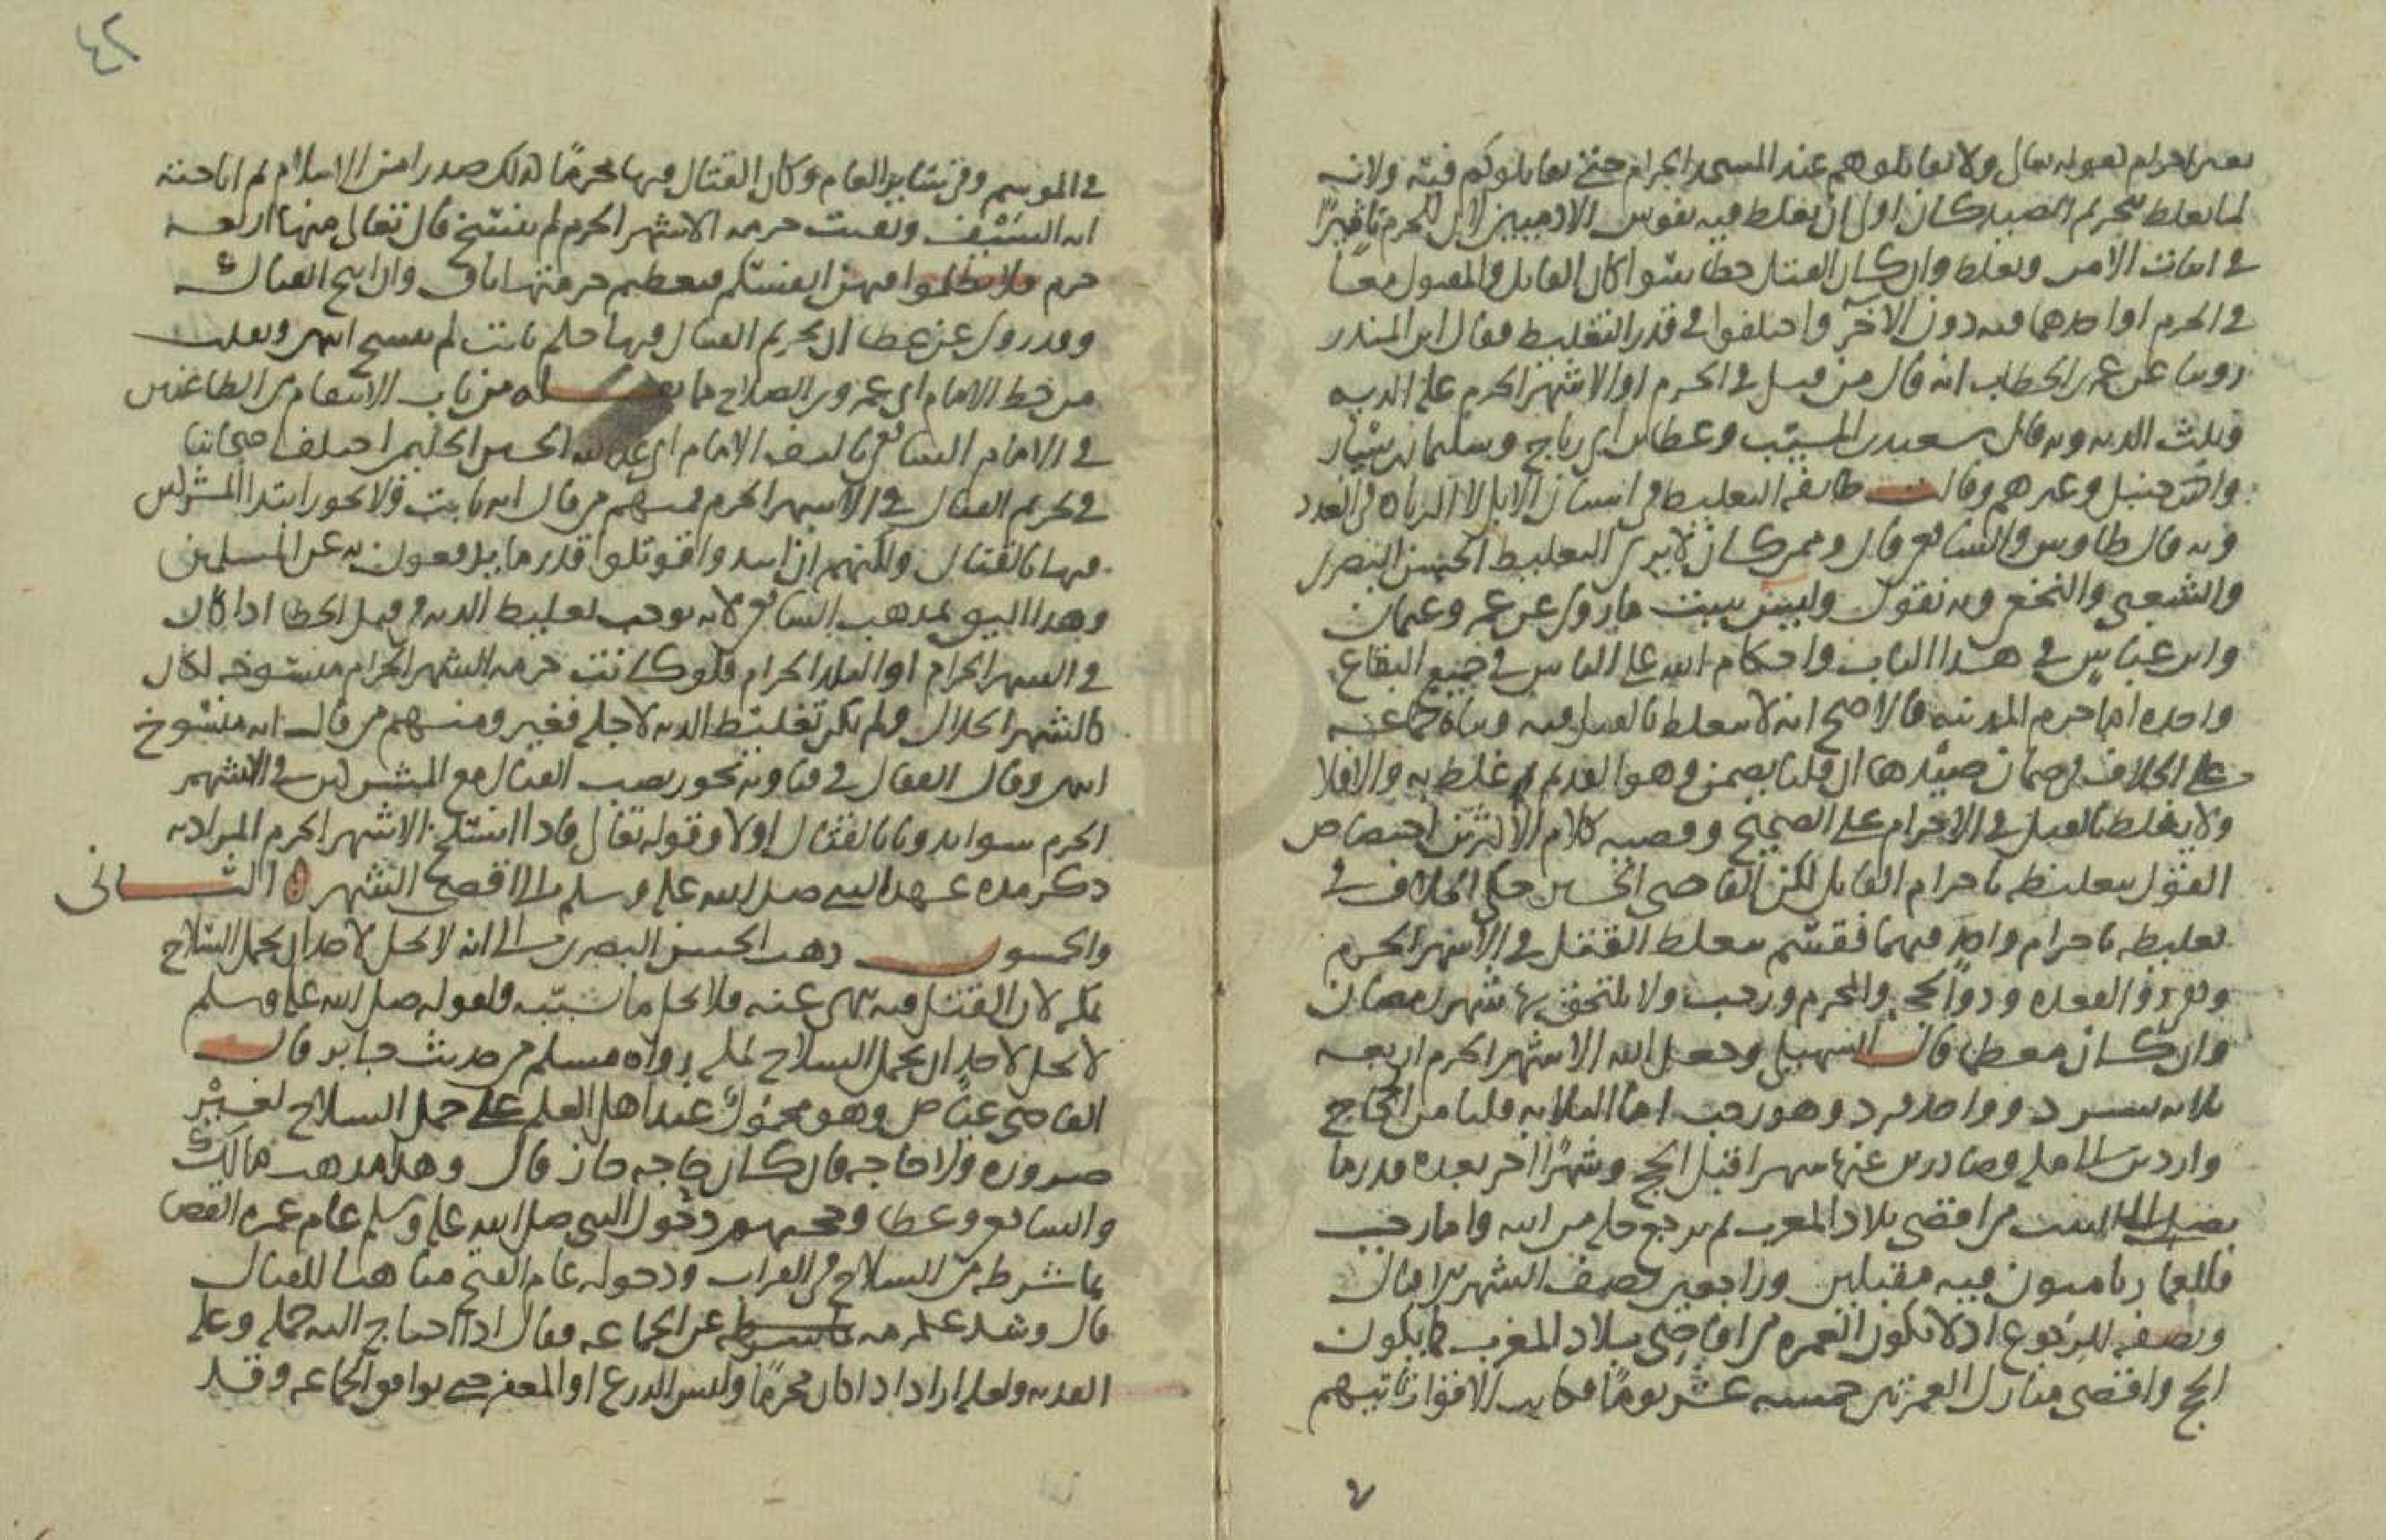 بغير احرام لقوله تعالى ولا تقاتلوهم عند المسجد الحرام حتى يقاتلوكم فيه ولانه
لما تغلظ تحريم الصيد كان اولى ان تغلظ فيه نفوس الادميين لان للحرم تاثيرًا
في الامر وتغلظ وان كان القتل خطا سوا كان القاتل والمقتول معا
في الحرم او احدهما فيه دون الآخر واختلفوا في قدر التغليظ فقال ابن المنذر
روينا عن عمر بن الخطاب انه قال من قتل في الحرم او الاشهر الحرم عليه الديه
وثلث الديه وبه قال سعيد بن المسيب وعطا بن ابي رباح وسليمان بن يسار
واحمد بن حنبل وغيرهم وقالت طائفه التغليظ في اسنان الابل لا الزياده في العدد
وبه قال طاوس والشافعي قال وممن كان لا يرى التغليظ الحسن البصري
والشعبي والنخعي وبه نقول وليس يثبت ما روي عن عمر وعثمان
وابن عباس في هذا الباب واحكام الله على الناس في جميع البقاع
واحده اما حرم المدينه فالاصح انه لا يتغلظ بالقتل فيه وبناه جماعه
على الخلاف في ضمان صيدها ان قلنا يضمن وهو القديم غلظ به والا فلا
ولا يغلظ بالقتل في الاحرام على الصحيح وقضيه كلام الاكثرين اختصاص
القول بتغليظه باحرام القاتل لكن القاضي الحسين حكى الخلاف في
تغليظه باحرام واحد فيهما فقسم تغلظ القتل في الاشهر الحرم
وهي ذو القعده وذو الحجه والمحرم ورجب ولا يلتحق بها شهر رمضان
وان كان معظما قال السهيلي وجعل الله الاشهر الحرم اربعه
ثلاثه سرد وواحد فرد وهو رجب اما الثلاثه فليامن الحجاج
واردين الى مكه وصادرين عنها شهرا قبل الحج وشهرا اخر بعده قدر ما
يصل الى البيت من اقصى بلاد المغرب ثم يرجع واما رجب
فللعمار يامنون فيه مقبلين وراجعين نصف الشهر للاقبال
ونصفه للرجوع اذ لا تكون العمره من اقاصي بلاد المغرب كما يكون
الحج واقصى منازل المعتمرين خمسه عشر يوما فكانت الاقوات تاتيهم
٤٢
في الموسم وفي سائر العام وكان القتال فيها محرما كذلك صدرا من الاسلام ثم اباحته
ايه السيف وبقيت حرمه الاشهر الحرم لم ينسخ قال تعالى منها اربعه
حرم فلا تظلموا فيهن انفسكم فتعظيم حرمتها باق وان ابيح القتال
وقد روي عن عطا ان تحريم القتال فيها حكم ثابت لم ينسخ انتهى ونقلت
من خط الامام ابي عمرو بن الصلاح من باب الانتقام من الطاغين
في الامام الشافعي تاليف الامام ابي عبد الله الحسن الحليمي اختلف اصحابنا
في تحريم القتال في الاشهر الحرم فمنهم من قال انه ثابت ولا يجوز ابتدا المشركين
فيها بالقتال ولكنهم ان ابتدوا قوتلوا قدر ما يدفعون به عن المسلمين
وهذا اليق بمذهب الشافعي لانه يوجب تغليظ الديه في قتل الخطا اذا كان
في الشهر الحرام او البلد الحرام فلو كانت حرمه الشهر الحرام منسوخه لكان
كالشهر الحلال ولم يكن تغليظ الديه لاجله فغير ومنهم من قال انه منسوخ
انتهى وقال القفال في فتاويه يجوز نصب القتال مع المشركين في الاشهر
الحرم سوا بدونا بالقتال او لا وقوله تعالى فاذا انسلخ الاشهر الحرم المراد به
ذكر مده عهد النبي صلى الله عليه وسلم الى الشهر الثاني
والخمسون ذهب الحسن البصري الى انه لا يحل لاحد ان يحمل السلاح
بمكه لان القتل فيه نهى عنه فلا يحل ما تسببه ولقوله صلى الله عليه وسلم
لا يحل لاحد ان يحمل السلاح بمكه رواه مسلم من حديث جابر قال
القاضي عياض وهو محمول عند اهل العلم على حمل السلاح لغير
ضروره ولا حاجه فان كان حاجه جاز قال وهذا مذهب مالك
والشافعي وعطا وحجتهم دخول النبي صلى الله عليه وسلم عام عمره القضا
بما شرطه من السلاح في القراب ودخوله عام الفتح متاهبا للقتال
قال وشذ عكرمه عن الجماعه فقال اذا احتاج اليه حمله وعليه
الفديه ولعله اراد اذا كان محرما ولبس الدرع او المغفر حتى يوافق الجماعه وقد